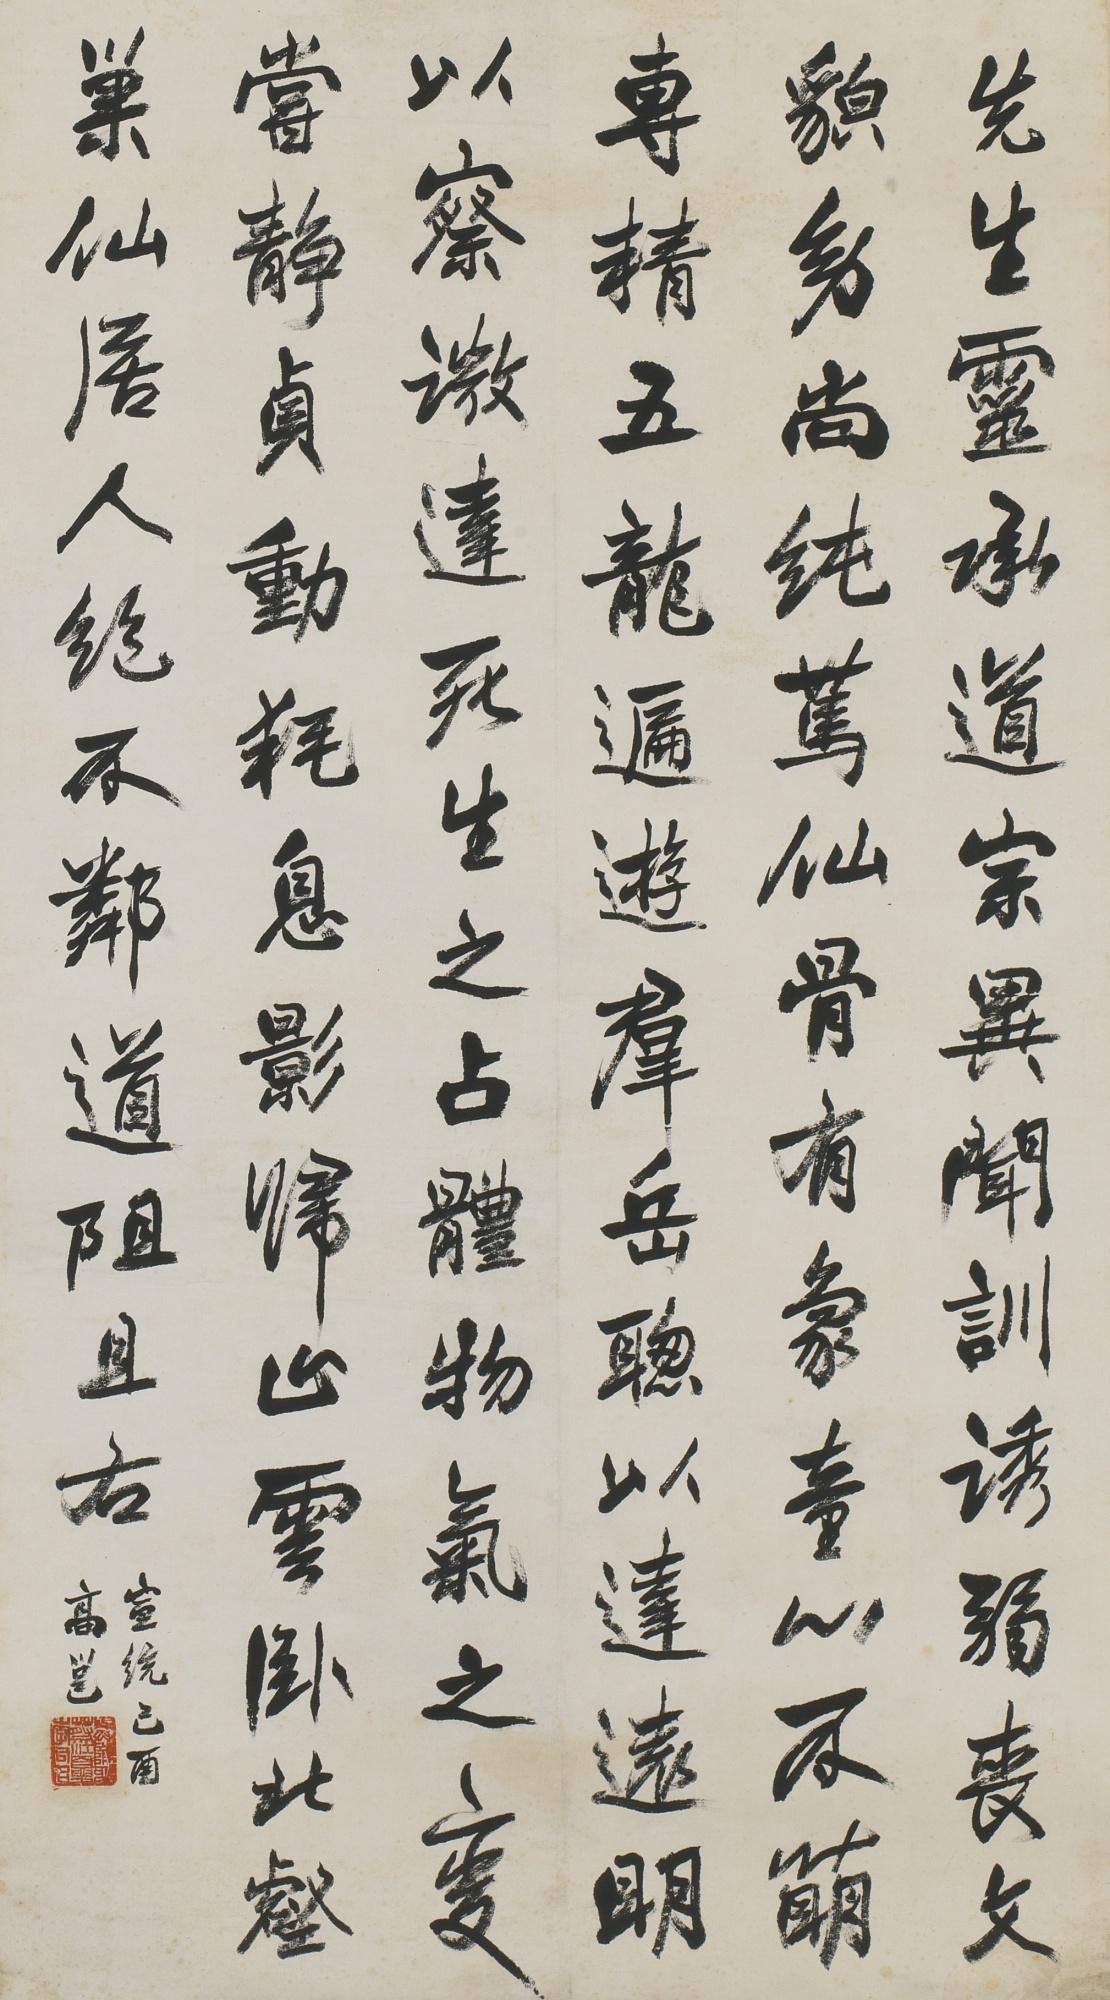 先生靈承道宗異聞訓誘弱喪文
貌多尚純篤仙骨有象童心不萌
専精五龍遍遊羣岳聰以達遠明
以察微達死生之占體物氣之變
嘗靜貞動耗息影歸止雲臥北壑
巢仙居人絶不鄰道阻且右
宣統己酉
高邕